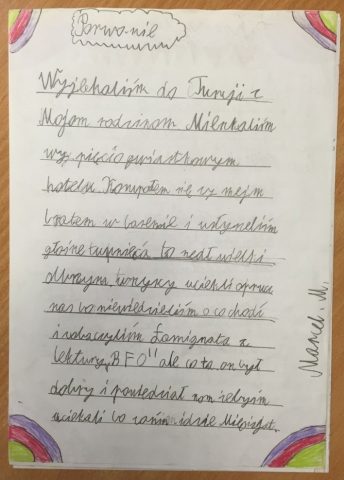 Porwanie
Wyjehaliśm do Turcji z
Mojom rodzinom Mieszkaliśm
w pięcio gwiastkowym
hotelu. Kompałem się z mojm
bratem w basenie i usłyszeliśm
głośne tupnięcia to był wielki
olbrzym turyscy uciekli oprucz
nas bo niewiedzieliśm o co chodzi
i zobaczyliśm Łamignata z
lektury „BFO" ale co to on był
dobry i powiedział nom żebyśm
uciekali bo zanim idzie Mięsożer.
Marcel. M.